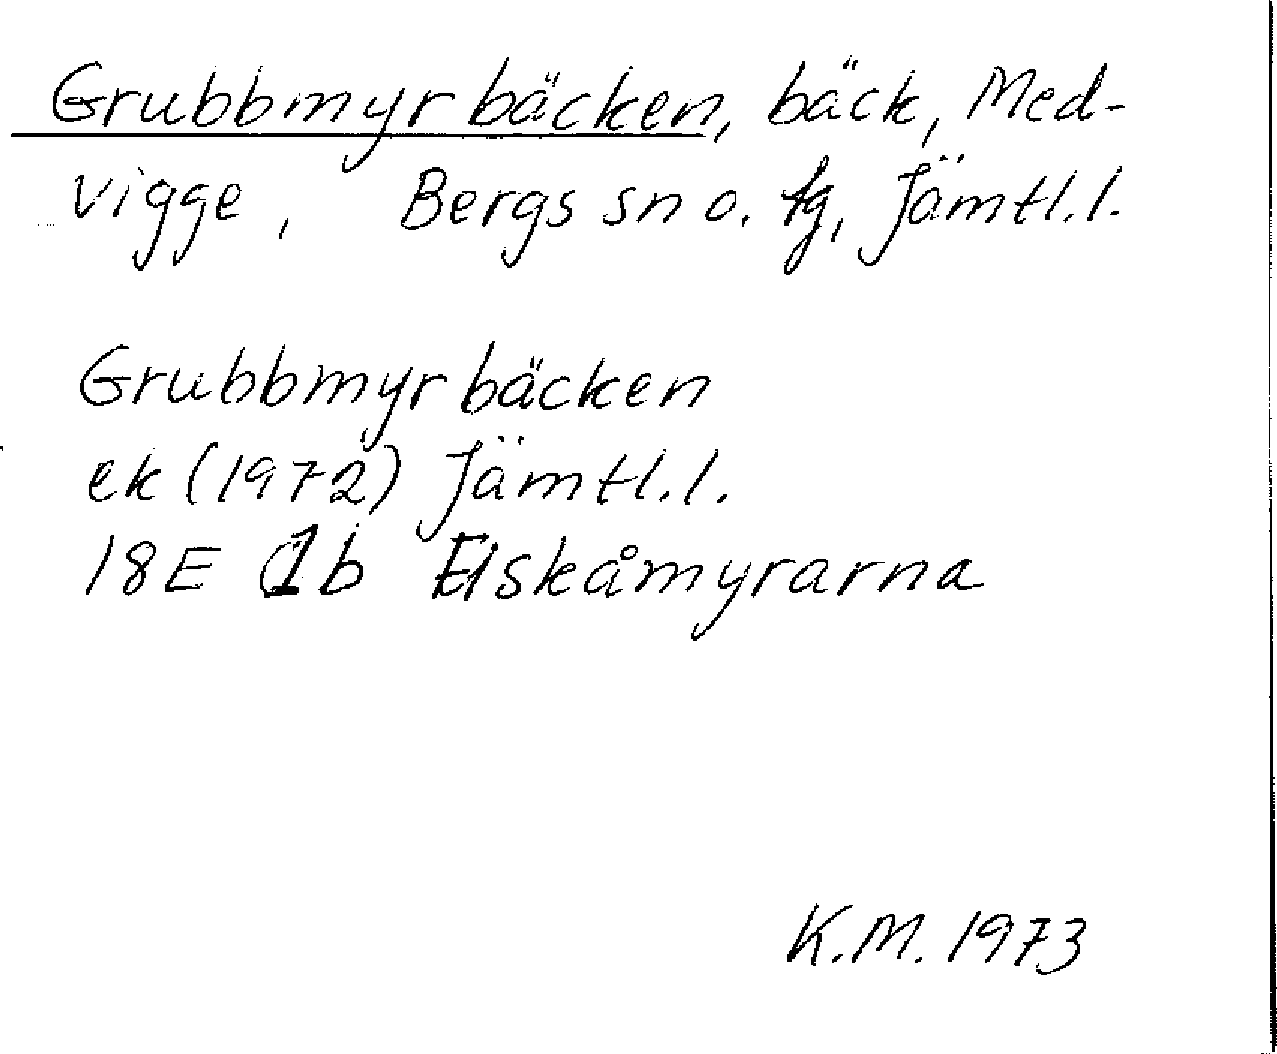 Grubbmyrbäcken, bäck, Med-
vigge, Bergs sn o. tg, Jämtl. l.
Grubbmyrbäcken
ek (1972) Jämtl. l.
18E 1b Elskåmyrarna
K.M. 1973